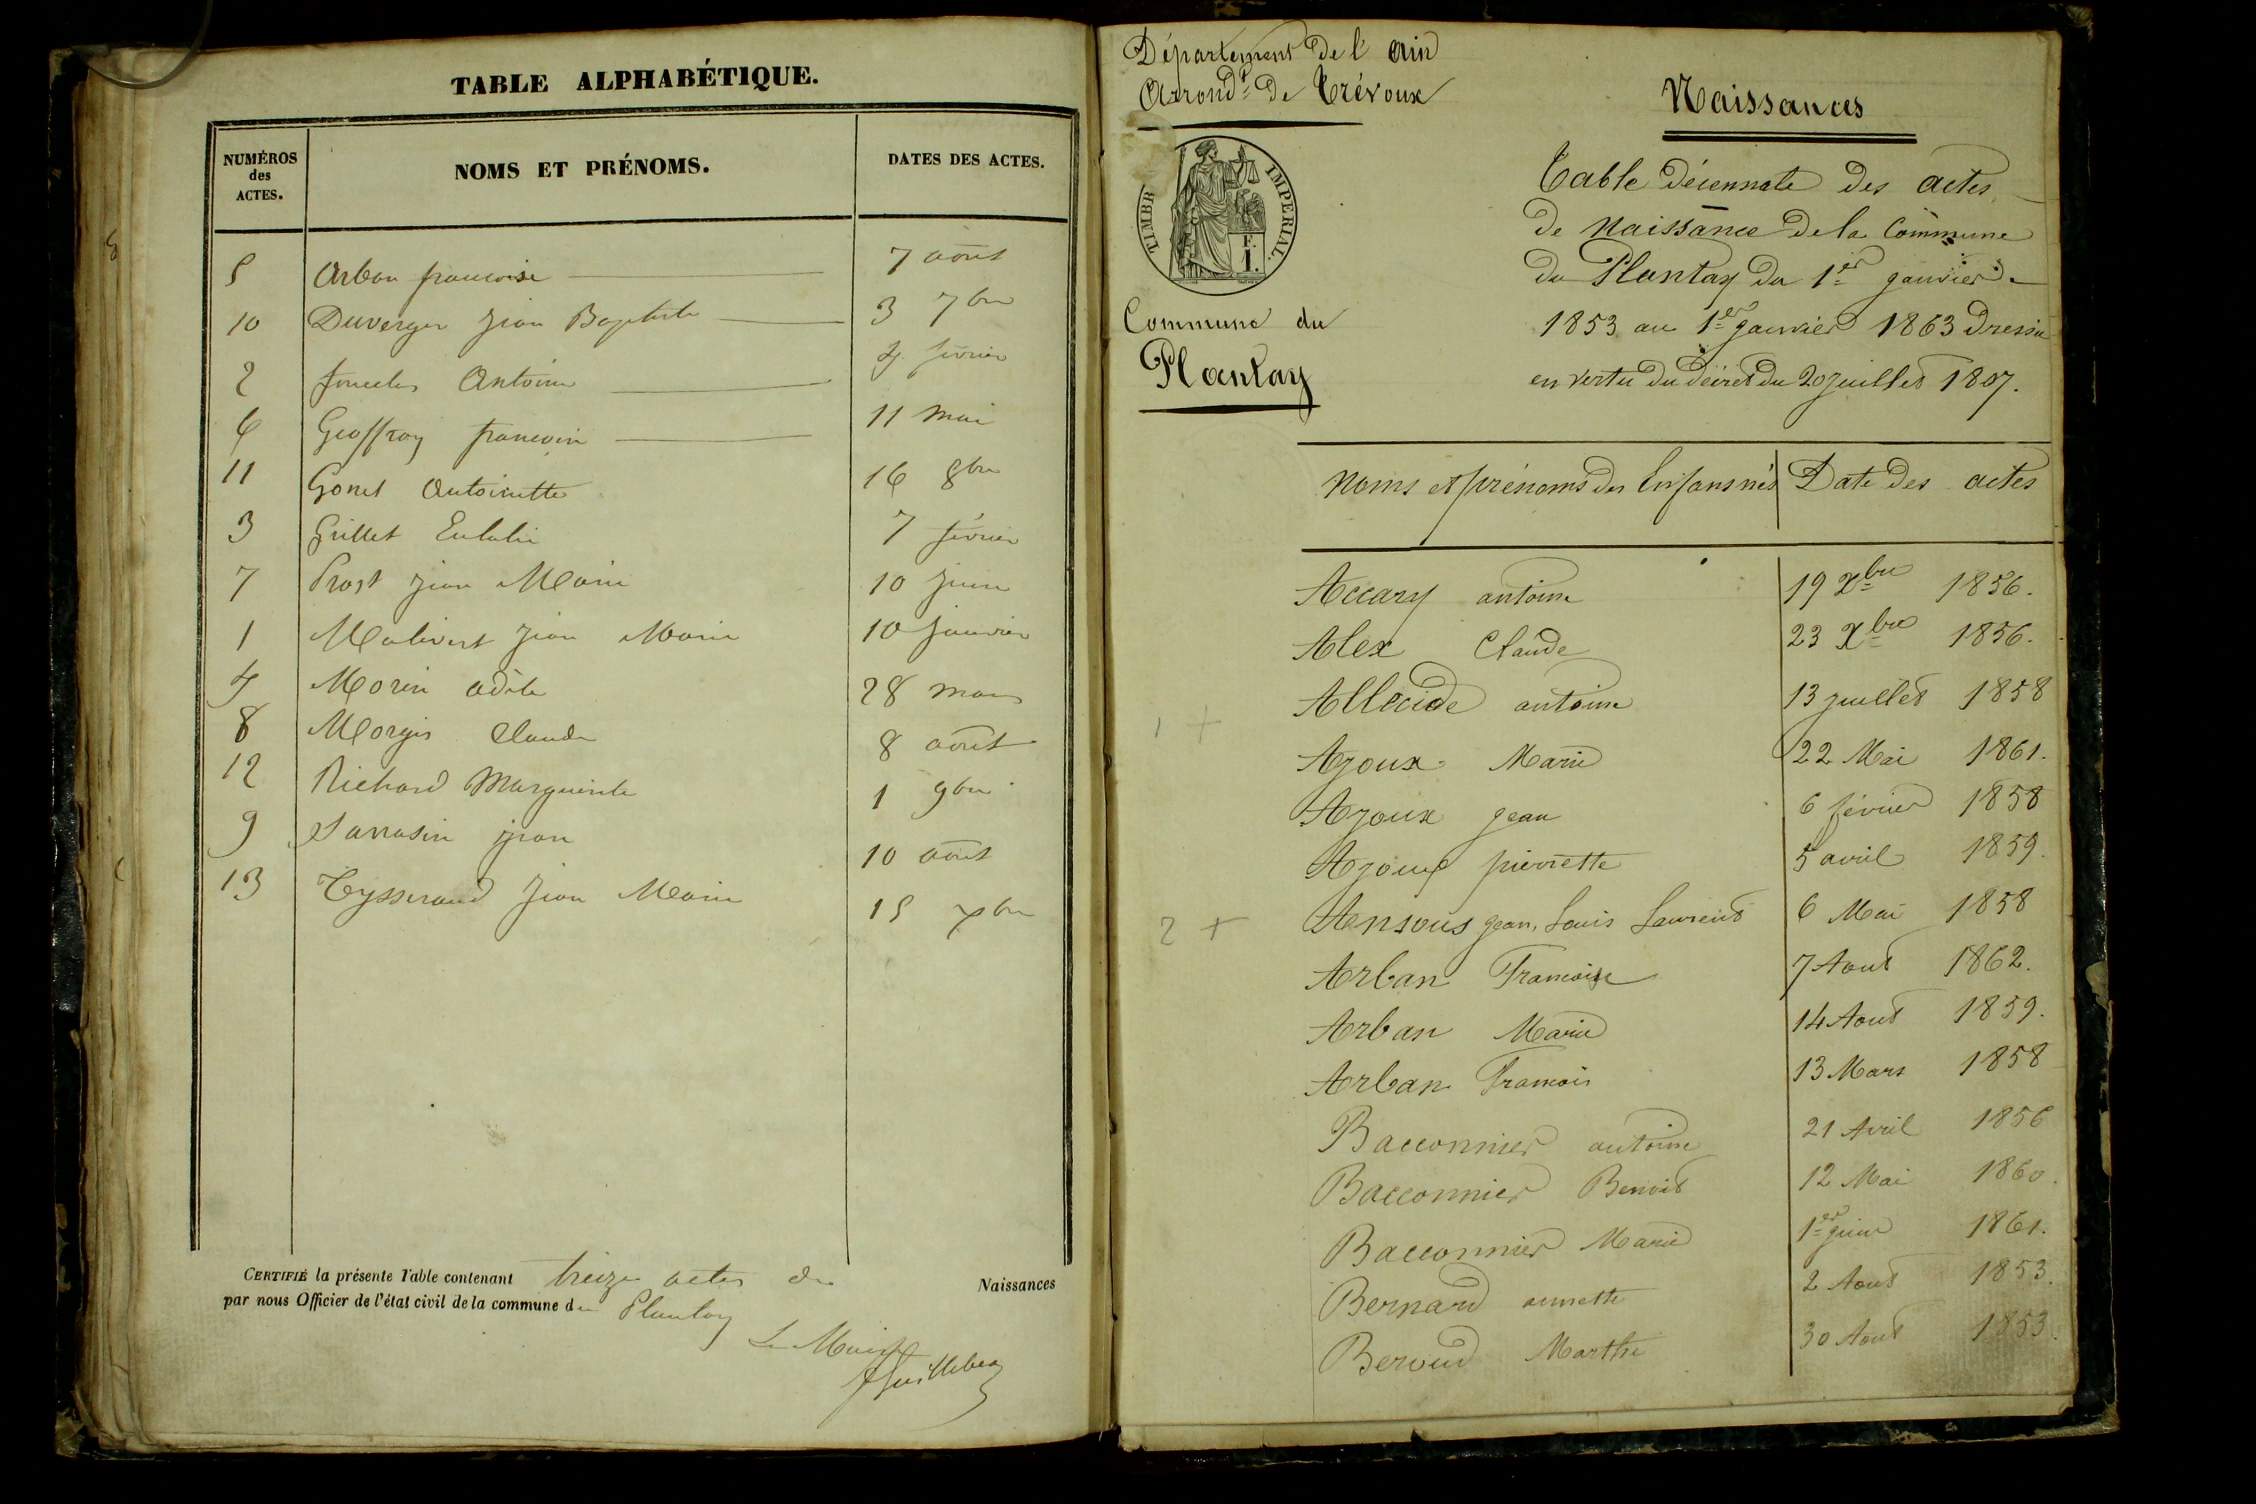 TABLE ALPHABÉTIQUE.
NUMÉROS des ACTES. NOMS ET PRÉNOMS. DATES DES ACTES.
5 Arban francoise 7 août
10 Duverger Jean Baptiste 3 7bre
2 Antoine 4 février
6 Geoffray francois 11 mai
11 Gonet Antoinette 16 8bre
3 Grillet Eulalie 7 février
7 Prost Jean Marie 10 Juin
1 Malivert Jean Marie 10 Janvier
4 Morin adèle 28 mars
8 Morgis Claude 8 août
12 Richard Marguerite 1 9bre
9 Sarrasin jean 10 août
13 Teysserand Jean Marie 15 xbre
CERTIFIÉ la présente Table contenant treize actes de Naissances
par nous Officier de l'état civil de la commune du Plantay
Le Maire
Département de l'Ain
Arrondt de Trévoux
TIMBRE IMPERIAL.
F.
1.
Commune du
Plantay
Naissances
Table décennale des actes
de Naissance de la Commune
du Plantay du 1er janvier
1853 au 1er janvier 1863 Dressée
en vertu du décret du 20 juillet 1807.
Noms et prénoms des Enfans nés Date des actes
Accary antoine 19 Xbre 1856.
Alex Claude 23 Xbre 1856.
1 + Allecide antoine 13 juillet 1858
Ajoux Marie 22 Mai 1861.
Ajoux jean 6 février 1858
Ajoux pierrette 5 avril 1859.
2 + Aensous jean, Louis Laurent 6 Mai 1858
Arban Francoise 7 Aout 1862.
Arban Marie 14 Aout 1859.
Arban Francois 13 Mars 1858
Bacconnier antoine 21 Avril 1856
Bacconnier Benoit 12 Mai 1860.
Bacconnier Marie 1er juin 1861.
Bernard annette 2 Aout 1853.
Beroud Marthe 30 Aout 1853.